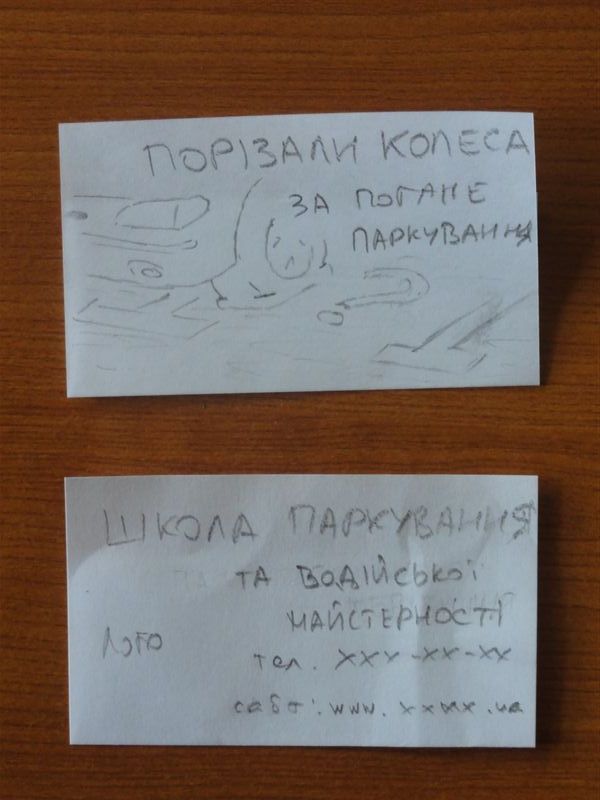 ПОРІЗАЛИ КОЛЕСА
ЗА ПОГАНЕ
ПАРКУВАННЯ
ШКОЛА ПАРКУВАННЯ
ТА ВОДІЙСЬКОЇ
МАЙСТЕРНОСТІ
Лого
тел. xxx-xx-xx
сайт: www. xxxx .ua